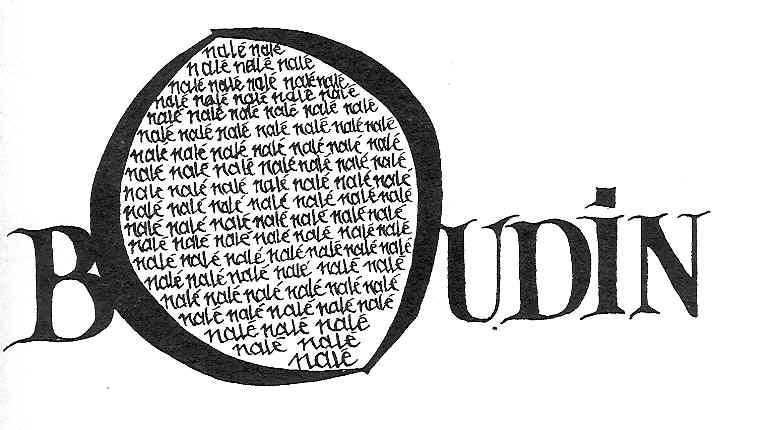 BOUDiN
nalé nalé
nalé nalé nalé
nalé nalé nalé nalé nalé
nalé nalé nalé nalé nalé
nalé nalé nalé nalé nalé nalé
nalé nalé nalé nalé nalé nalé nalé
nalé nalé nalé nalé nalé nalé nalé
nalé nalé nalé nalé nalé nalé nalé
nalé nalé nalé nalé nalé nalé nalé
nalé nalé nalé nalé nalé nalé nalé
nalé nalé nalé nalé nalé nalé nalé
nalé nalé nalé nalé nalé nalé nalé
nalé nalé nalé nalé nalé nalé nalé
nalé nalé nalé nalé nalé nalé
nalé nalé nalé nalé nalé nalé
nalé nalé nalé nalé nalé nalé
nalé nalé nalé
nalé nalé
nalé